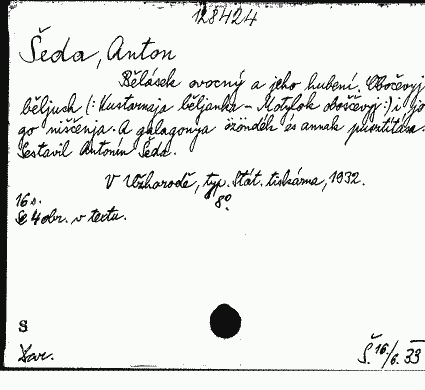 128424
Šeda, Anton
Bělásek ovocný a jeho hubení. Obočevyj
běljuch (: Kustarnaja běljanka - Motylok oboščevyj :) i jo
go niščenja. A galagonya özöndék és annak pusztitása.
Sestavil Antonín Šeda.
V Užhorodě, typ. Stát. tiskárna, 1932.
16 s. 8°.
Se 4 obr. v textu.
S
Š. 16/6. 33